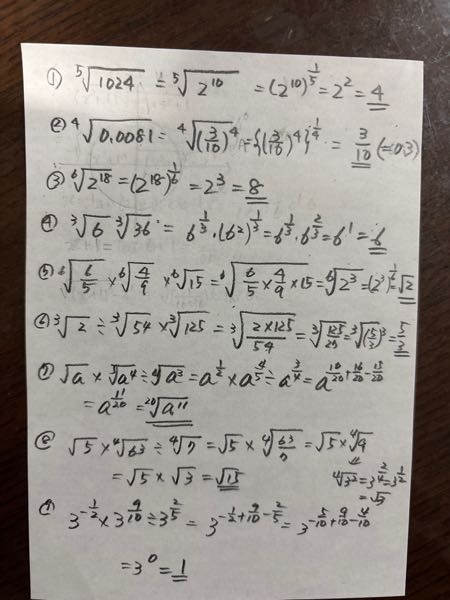 ① ⁵√1024 = ⁵√2¹⁰ = (2¹⁰)^{1/5} = 2² = 4
② ⁴√0.0081 = ⁴√(3/10)⁴ = {(3/10)⁴}^{1/4} = 3/10 (=0.3)
③ ⁶√2¹⁸ = (2¹⁸)^{1/6} = 2³ = 8
④ ³√6 ³√36 = 6^{1/3}·(6²)^{1/3} = 6^{1/3}·6^{2/3} = 6¹ = 6
⑤ ⁶√(6/5) × ⁶√(4/9) × ⁶√15 = ⁶√(6/5 × 4/9 × 15) = ⁶√2³ = (2³)^{1/6} = √2
⑥ ³√2 ÷ ³√54 × ³√125 = ³√(2×125/54) = ³√(125/27) = ³√(5/3)³ = 5/3
⑦ √a × ⁵√a⁴ ÷ ⁴√a³ = a^{1/2} × a^{4/5} ÷ a^{3/4} = a^{10/20+16/20-15/20}
= a^{11/20} = ²⁰√a¹¹
⑧ √5 × ⁴√63 ÷ ⁴√7 = √5 × ⁴√(63/7) = √5 × ⁴√9
= √5 × √3 = √15
⁴√3² = 3^{2/4} = 3^{1/2}
= √3
⑨ 3^{-1/2} × 3^{9/10} ÷ 3^{2/5} = 3^{-1/2+9/10-2/5} = 3^{-5/10+9/10-4/10}
= 3⁰ = 1